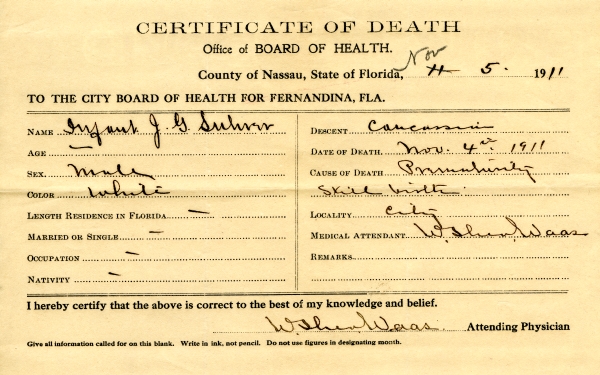 CERTIFICATE OF DEATH
Office of BOARD OF HEALTH.
Nov
County of Nassau, State of Florida, 11 5. 1911
TO THE CITY BOARD OF HEALTH FOR FERNANDINA, FLA.
NAME Infant J. G. Suhrer
AGE —
SEX. Male
COLOR White
LENGTH RESIDENCE IN FLORIDA —
MARRIED OR SINGLE —
OCCUPATION —
NATIVITY —
DESCENT Caucassin
DATE OF DEATH. Nov. 4th 1911
CAUSE OF DEATH Prematurity
Still birth
LOCALITY City
MEDICAL ATTENDANT W. Waas
REMARKS
I hereby certify that the above is correct to the best of my knowledge and belief.
W. Waas. Attending Physician
Give all information called for on this blank. Write in ink, not pencil. Do not use figures in designating month.